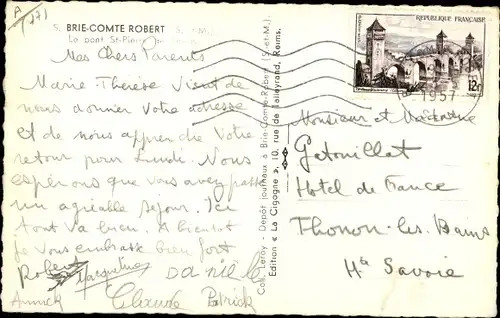 A 1371
5. BRIE-COMTE ROBERT (S.-et-M.)
Le pont St-Pierre
Mes Chers Parents
Marie Thérèse vient de
nous donner votre adresse
et de nous apprendre votre
retour pour Lundi. Nous
espérons que vous avez passé
un agréable séjour. Ici
tout va bien. A bientôt
je vous embrasse bien fort
Robert Jacqueline Daniel
Annick Claude Patrick
Coll. Leroy - Dépôt journaux à Brie-Comte-Robert (S.-et-M.)
Edition « La Cigogne », 10, rue de Talleyrand, Reims.
REPUBLIQUE FRANÇAISE
12F
1957
Monsieur et Madame
Getouillat
Hotel de France
Thonon-les-Bains
Hte Savoie